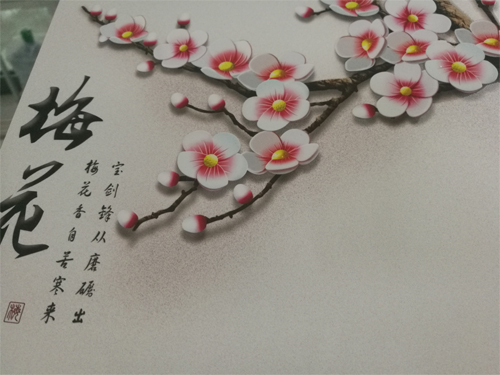 梅花
宝剑锋从磨砺出
梅花香自苦寒来